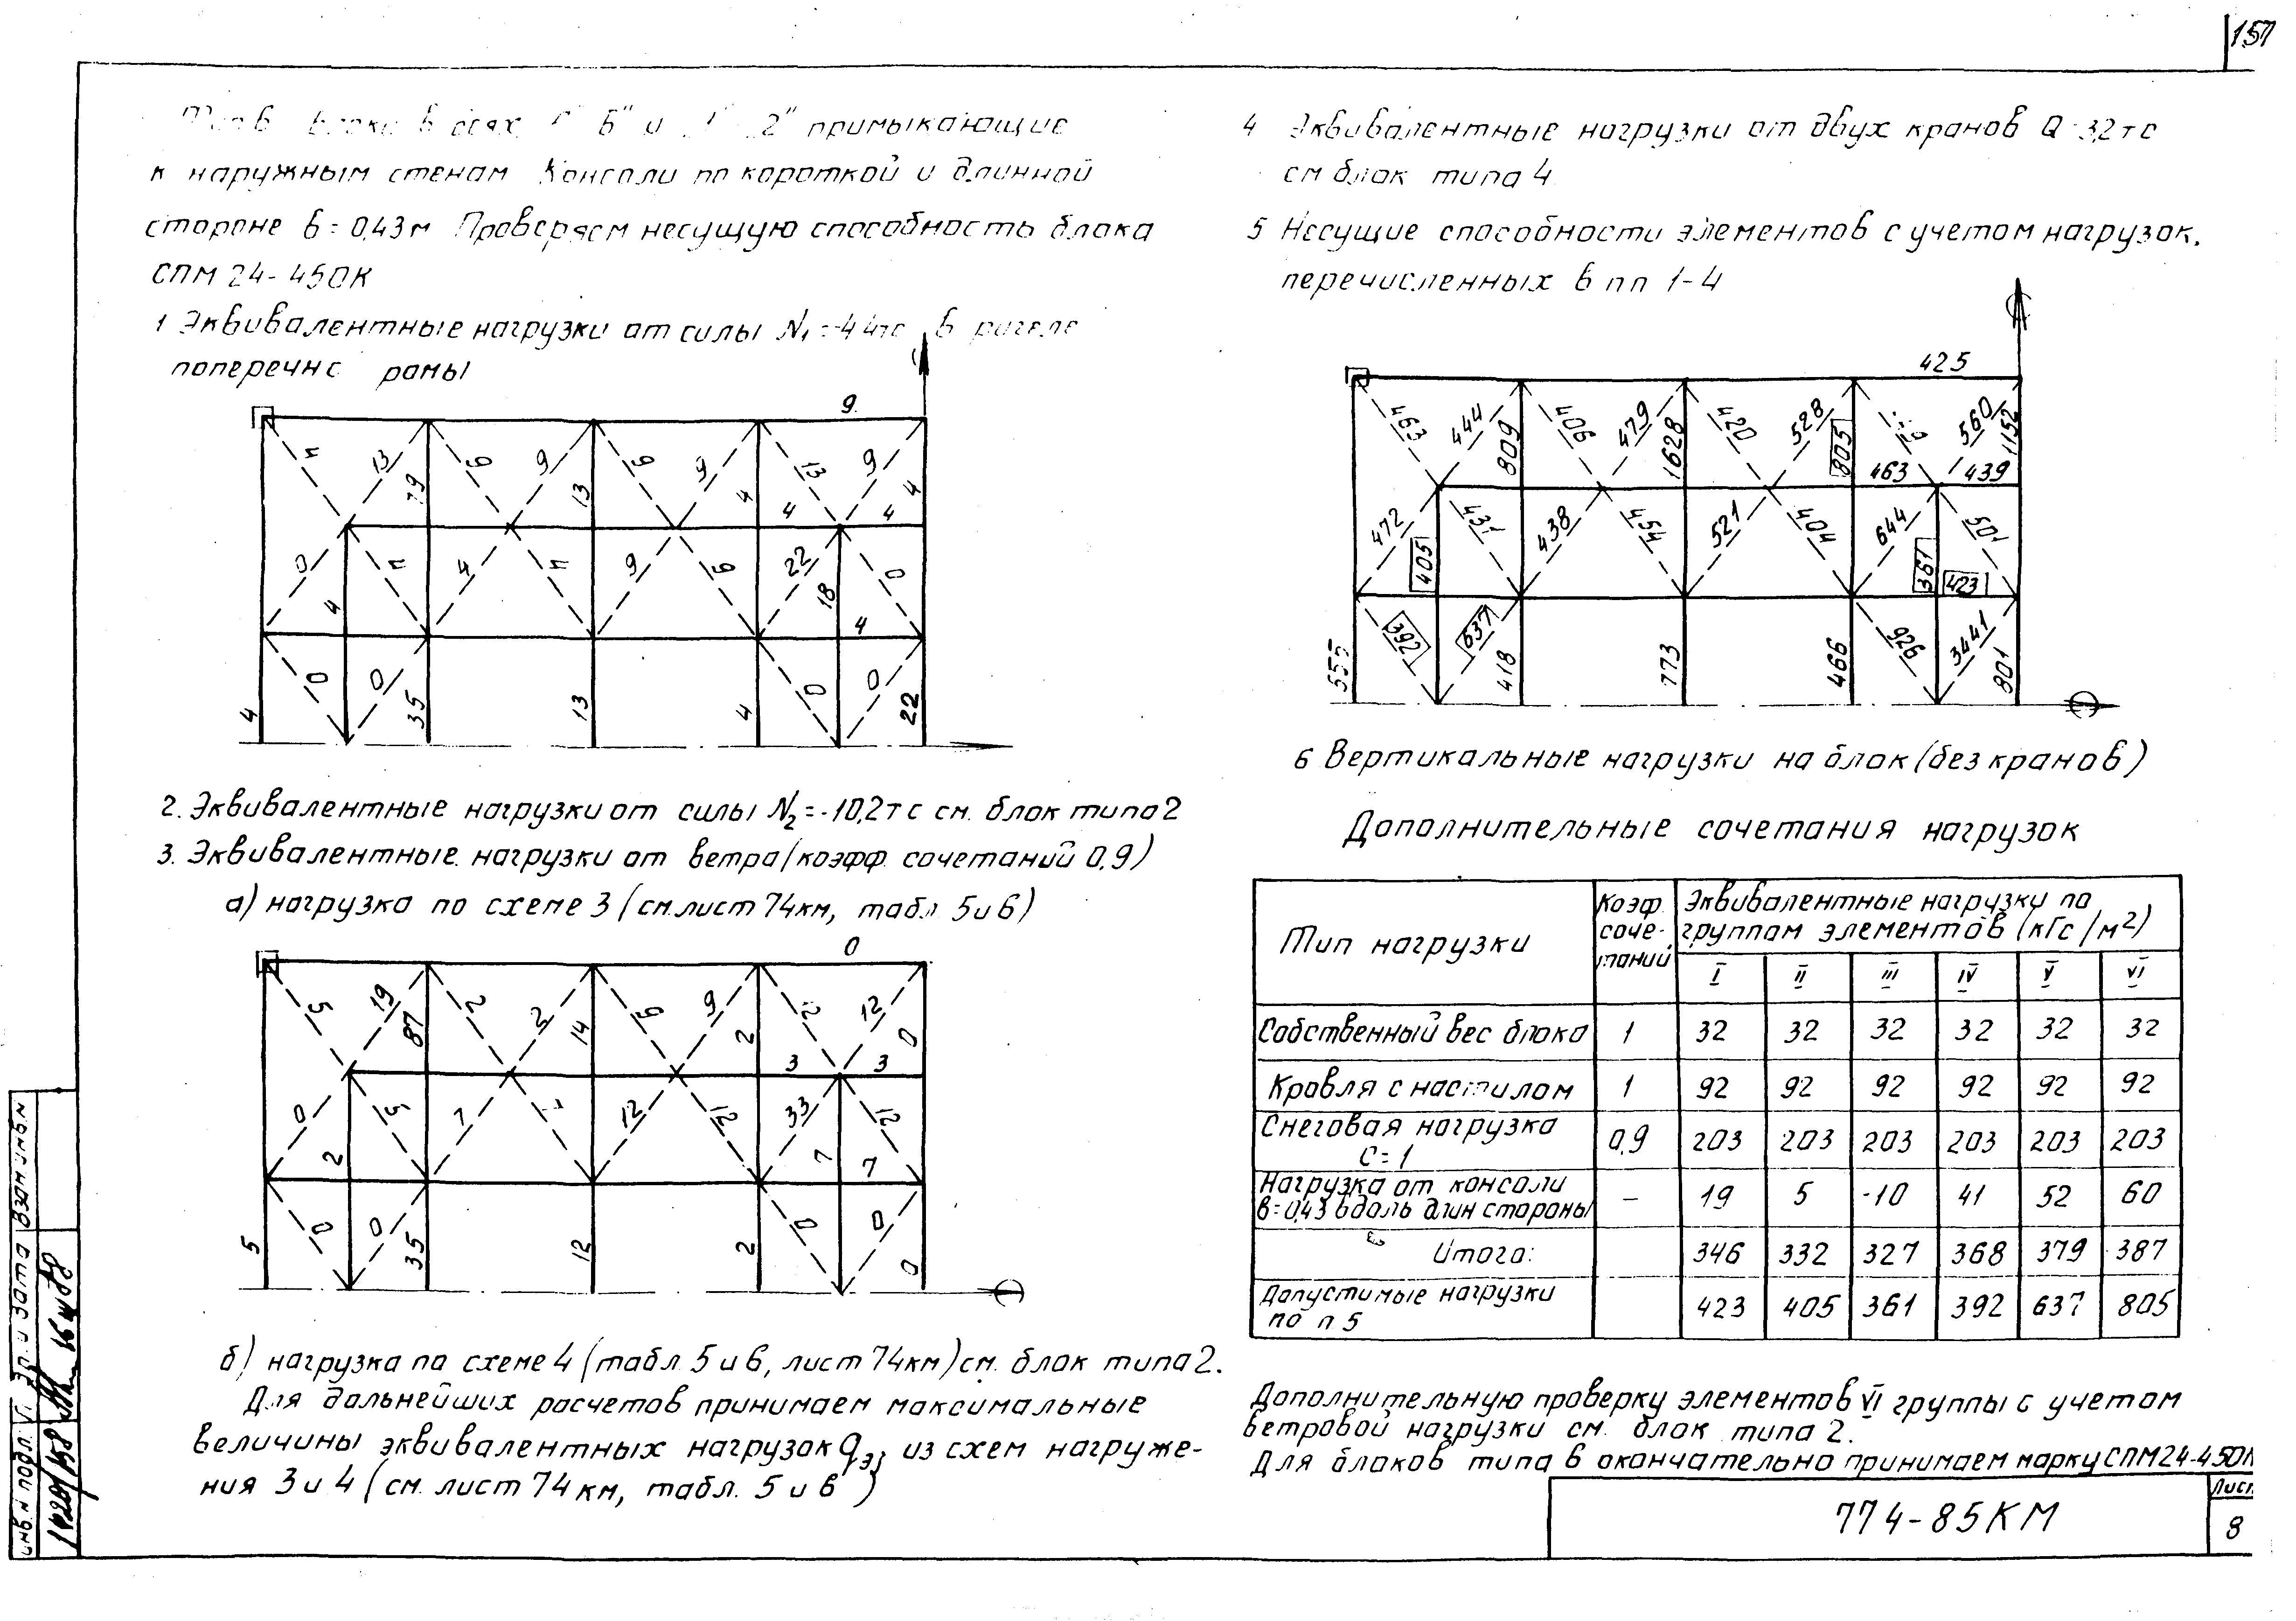 157
примыкающие
к наружным стенам Консоли по короткой и длинной
стороне в = 0,43м Проверяем несущую способность блока
СПМ 24-450К
1 Эквивалентные нагрузки от силы N₁ = -4,4тс в ригеле
рамы
9
13 9 9 9 9 13 9
79 13 4 4
4 4
0 4 9 9 22 0
4 18
4
0 0 0 0
4 35 13 4 22
2. Эквивалентные нагрузки от силы N₂ = -10,2тс см. блок типа 2
3. Эквивалентные нагрузки от ветра (коэфф. сочетаний 0,9)
а) нагрузка по схеме 3 (см.лист 74км, табл 5 и 6)
0
5 19 2 2 9 9 2 12
87 14 2 0
3 3
0 5 7 12 12 33 12
2 7 7
0 0 0 0
5 35 12 2 0
б) нагрузка по схеме 4 (табл. 5 и 6, лист 74км) см. блок типа 2.
Для дальнейших расчетов принимаем максимальные
величины эквивалентных нагрузок qэ, из схем нагруже-
ния 3 и 4 (см. лист 74 км, табл. 5 и 6)
4 Эквивалентные нагрузки от двух кранов Q = 3,2 тс
см блок типа 4
5 Несущие способности элементов с учетом нагрузок,
перечисленных в пп 1-4
425
463 444 406 479 420 528 560
809 1628 805 1152
463 439
472 431 438 454 521 404 644 501
405 361 423
392 637 926 3441
555 418 773 466 801
6 Вертикальные нагрузки на блок (без кранов)
Дополнительные сочетания нагрузок
Тип нагрузки
Коэф. соче- таний
Эквивалентные нагрузки по
группам элементов (кгс/м²)
I II III IV V VI
Собственный вес блока 1 32 32 32 32 32 32
Кровля с настилом 1 92 92 92 92 92 92
Снеговая нагрузка
С = 1 0,9 203 203 203 203 203 203
Нагрузка от консоли
в=0,43 вдоль длин стороны – 19 5 -10 41 52 60
Итого: 346 332 327 368 379 387
Допустимые нагрузки
по п 5 423 405 361 392 637 805
Дополнительную проверку элементов VI группы с учетом
ветровой нагрузки см. блок типа 2.
Для блоков типа 6 окончательно принимаем марку СПМ24-450К
774-85КМ
Лист
8
Инв.№ подл.
дата
Взам инв.№